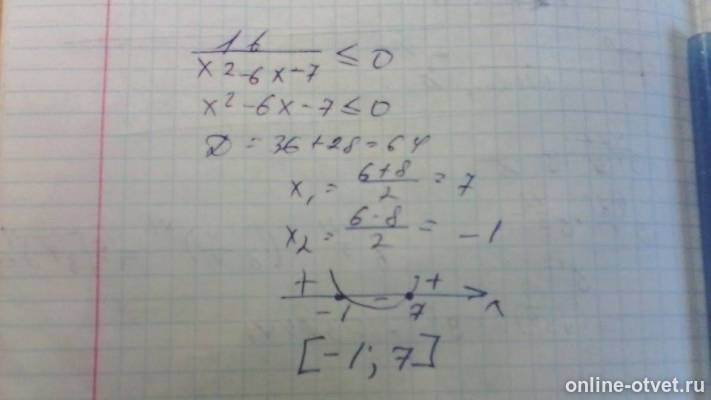 16 / (x² - 6x - 7) ≤ 0
x² - 6x - 7 ≤ 0
D = 36 + 28 = 64
x₁ = (6+8)/2 = 7
x₂ = (6-8)/2 = -1
+ - +
-1 7
[-1; 7]
online-otvet.ru